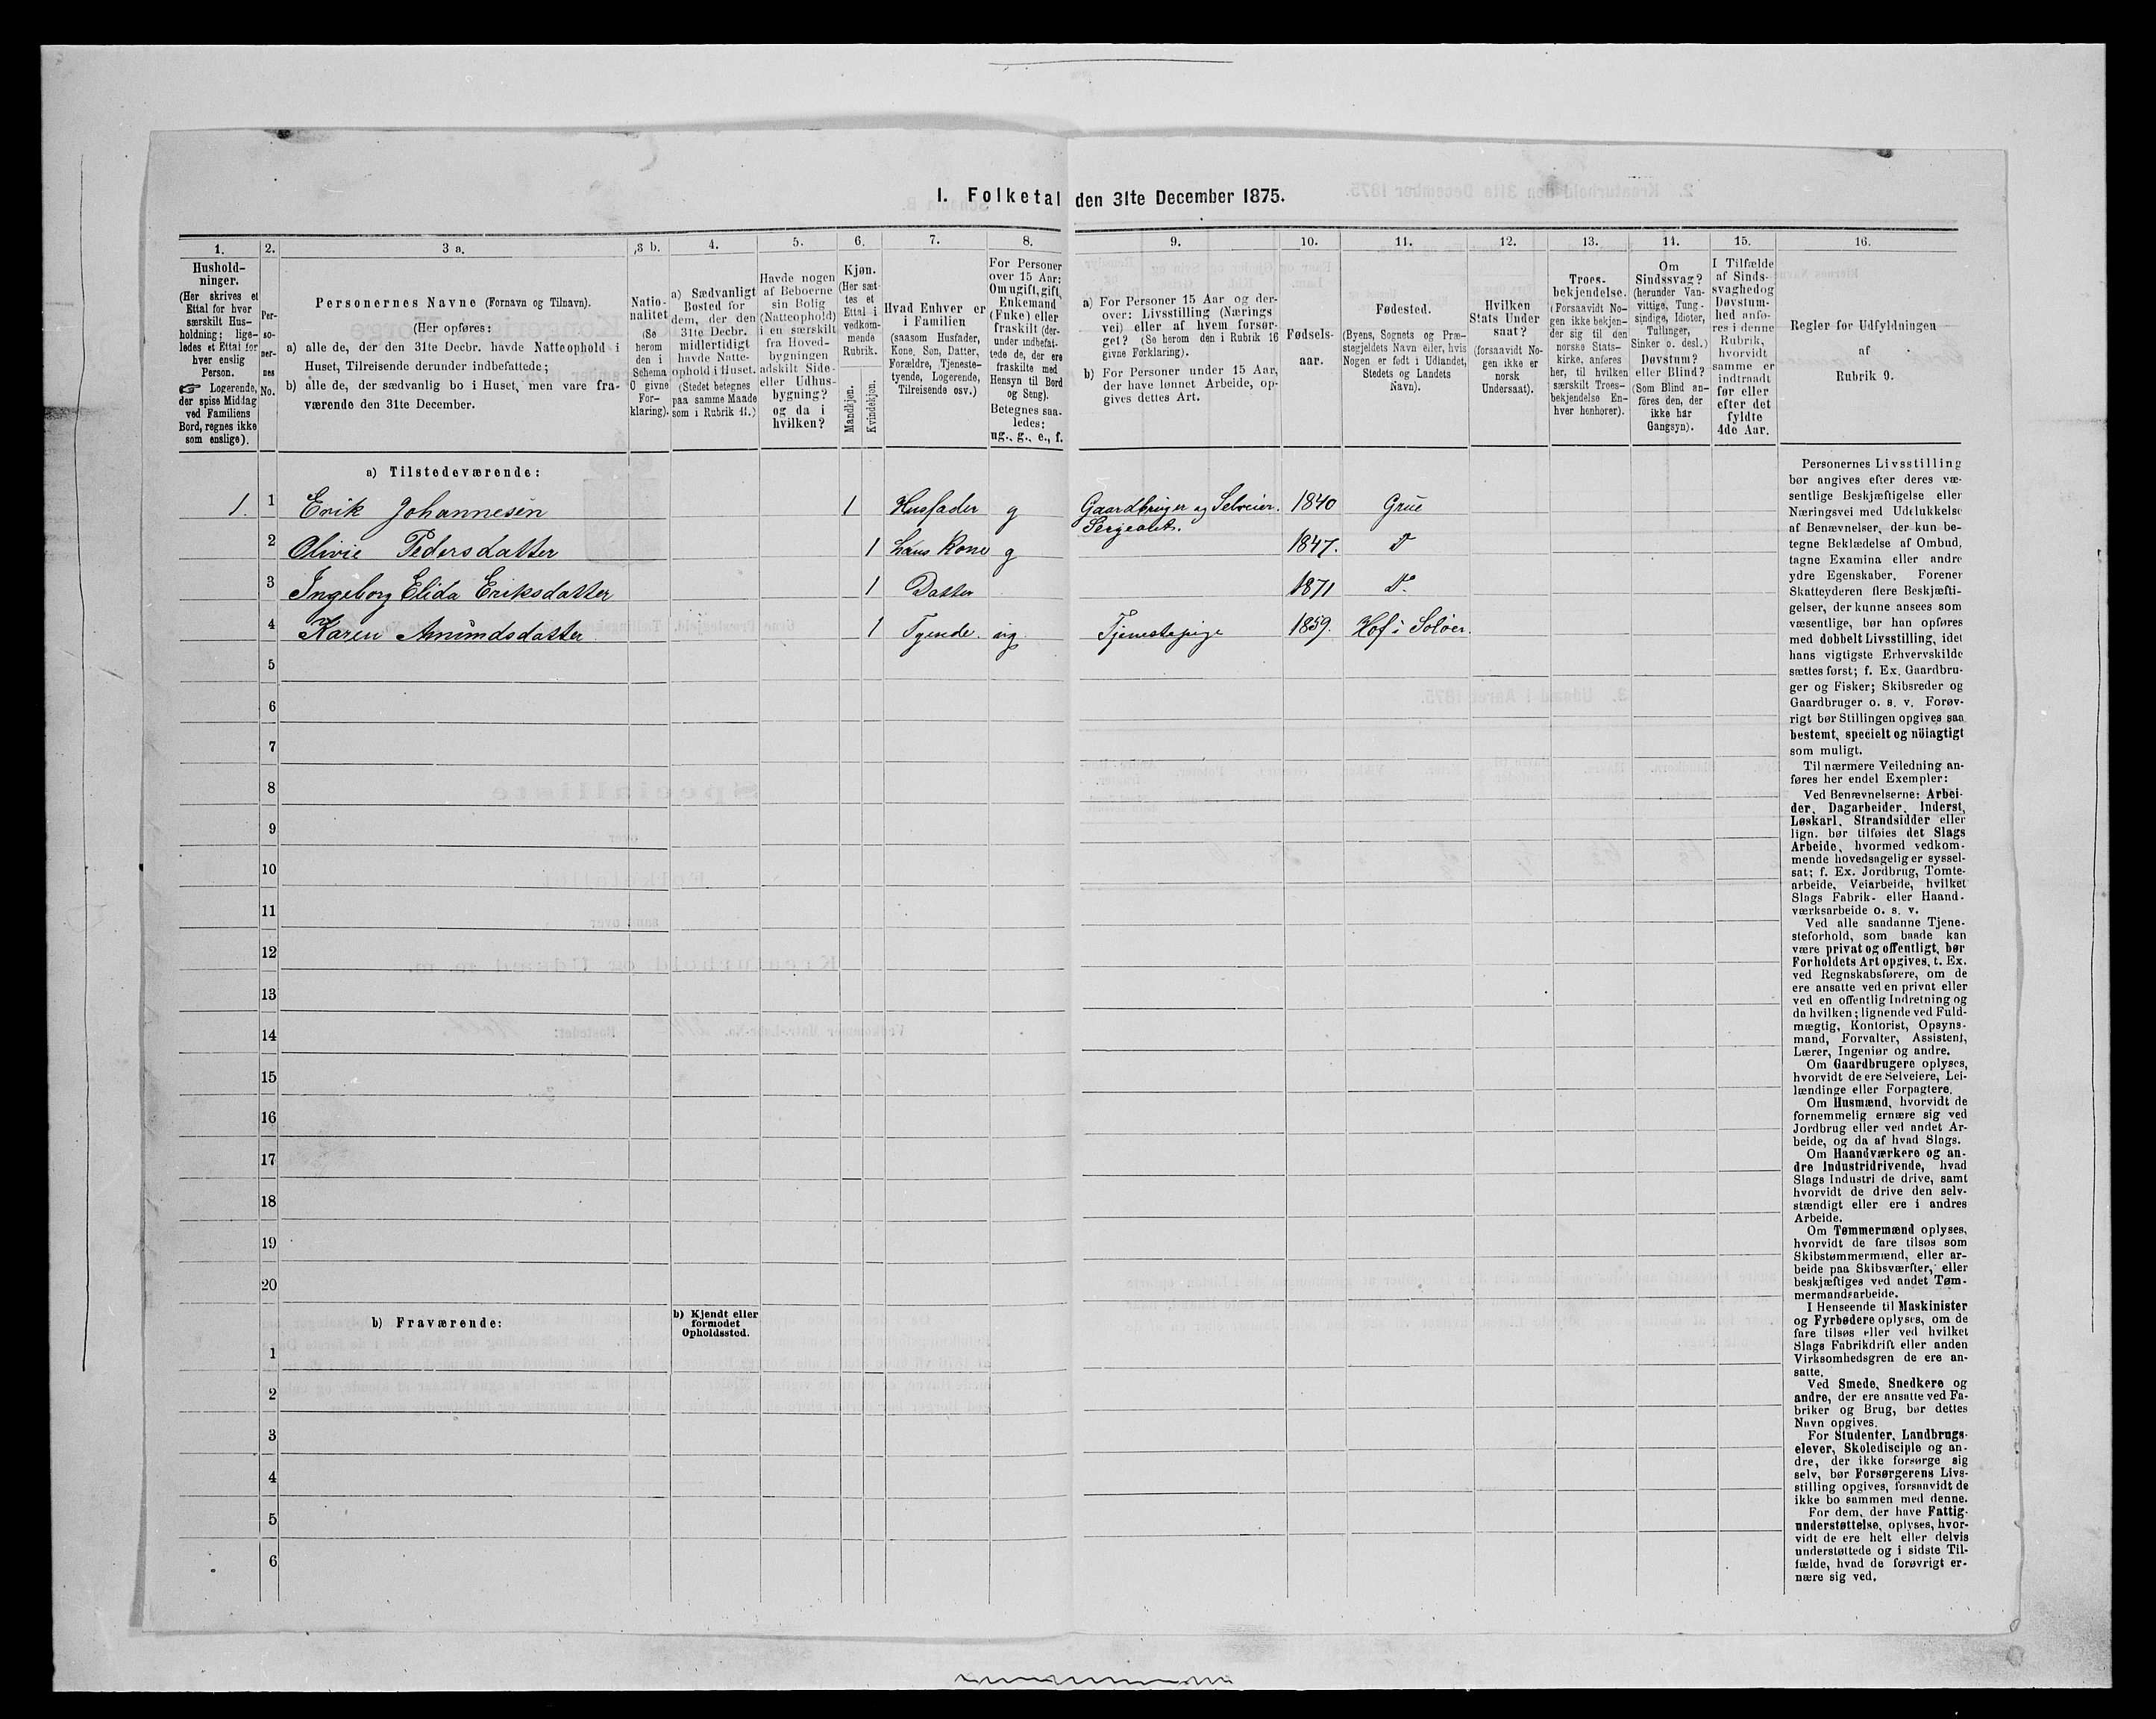 I. Folketal den 31te December 1875.
1.
Hushold-
ninger.
(Her skrives et
Ettal for hver
særskilt Hus-
holdning; lige-
ledes et Ettal for
hver enslig
Person.
☞ Logerende,
der spise Middag
ved Familiens
Bord, regnes ikke
som enslige).
2.
Per-
so-
ner-
nes
No.
3 a.
Personernes Navne (Fornavn og Tilnavn).
(Her opføres:
a) alle de, der den 31te Decbr. havde Natteophold i
Huset, Tilreisende derunder indbefattede;
b) alle de, der sædvanlig bo i Huset, men vare fra-
værende den 31te December.
3 b.
Natio-
nalitet
(Se
herom
den i
Schema
C givne
For-
klaring).
4.
a) Sædvanligt
Bosted for
dem, der den
31te Decbr.
midlertidigt
havde Natte-
ophold i Huset.
(Stedet betegnes
paa samme Maade
som i Rubrik 11.)
5.
Havde nogen
af Beboerne
sin Bolig
(Natteophold)
i en særskilt
fra Hoved-
bygningen
adskilt Side-
eller Udhus-
bygning?
og da i
hvilken?
6.
Kjøn.
(Her sæt-
tes et
Ettal i
vedkom-
mende
Rubrik.
Mandkjøn.
Kvindekjøn.
7.
Hvad Enhver er
i Familien
(saasom Husfader,
Kone, Søn, Datter,
Forældre, Tjeneste-
tyende, Logerende,
Tilreisende osv.)
8.
For Personer
over 15 Aar:
Om ugift, gift,
Enkemand
(Enke) eller
fraskilt (der-
under indbefat-
tede de, der ere
fraskilte med
Hensyn til Bord
og Seng).
Betegnes saa-
ledes:
ug., g., e., f.
9.
a) For Personer 15 Aar og der-
over: Livsstilling (Nærings
vei) eller af hvem forsør-
get? (Se herom den i Rubrik 16
givne Forklaring).
b) For Personer under 15 Aar,
der have lønnet Arbeide, op-
gives dettes Art.
10.
Fødsels-
aar.
11.
Fødested.
(Byens, Sognets og Præ-
stegjeldets Navn eller, hvis
Nogen er født i Udlandet,
Stedets og Landets
Navn).
12.
Hvilken
Stats Under
saat?
(forsaavidt No-
gen ikke er
norsk
Undersaat).
13.
Troes-
bekjendelse.
(Forsaavidt No-
gen ikke bekjen-
der sig til den
norske Stats-
kirke, anføres
her, til hvilken
særskilt Troes-
bekjendelse En-
hver henhører).
14.
Om
Sindssvag?
(herunder Van-
vittige, Tung-
sindige, Idioter,
Tullinger,
Sinker o. desl.)
Døvstum?
eller Blind?
(Som Blind an-
føres den, der
ikke har
Gangsyn).
15.
I Tilfælde
af Sinds-
svaghed og
Døvstum-
hed anfø-
res i denne
Rubrik,
hvorvidt
samme er
indtraadt
før eller
efter det
fyldte
4de Aar.
16.
Regler for Udfyldningen
af
Rubrik 9.
a) Tilstedeværende:
1. 1 Erik Johannesen 1 Husfader g Gaardbruger og Selveier. Sergeant. 1840 Grue
2 Olivie Pedersdatter 1 hans Kone g 1847. Do
3 Ingeborg Elida Eriksdatter 1 Datter 1871 Do.
4 Karen Amundsdatter 1 Tyende. ug Tjenestepige 1859. Hof i Soløer.
5
6
7
8
9
10
11
12
13
14
15
16
17
18
19
20
b) Fraværende:
b) Kjendt eller
formodet
Opholdssted.
1
2
3
4
5
6
Personernes Livsstilling
bør angives efter deres væ-
sentlige Beskjæftigelse eller
Næringsvei med Udelukkelse
af Benævnelser, der kun be-
tegne Beklædelse af Ombud,
tagne Examina eller andre
ydre Egenskaber. Forener
Skatteyderen flere Beskjæfti-
gelser, der kunne ansees som
væsentlige, bør han opføres
med dobbelt Livsstilling, idet
hans vigtigste Erhvervskilde
sættes først; f. Ex. Gaardbru-
ger og Fisker; Skibsreder og
Gaardbruger o. s. v. Forøv-
rigt bør Stillingen opgives saa
bestemt, specielt og nöiagtigt
som muligt.
Til nærmere Veiledning an-
føres her endel Exempler:
Ved Benævnelserne: Arbei-
der, Dagarbeider, Inderst,
Løskarl, Strandsidder eller
lign. bør tilføies det Slags
Arbeide, hvormed vedkom-
mende hovedsagelig er syssel-
sat; f. Ex. Jordbrug, Tomte-
arbeide, Veiarbeide, hvilket
Slags Fabrik- eller Haand-
værksarbeide o. s. v.
Ved alle saadanne Tjene-
steforhold, som baade kan
være privat og offentligt, bør
Forholdets Art opgives, t. Ex.
ved Regnskabsførere, om de
ere ansatte ved en privat eller
ved en offentlig Indretning og
da hvilken; lignende ved Fuld-
mægtig, Kontorist, Opsyns-
mand, Forvalter, Assistent,
Lærer, Ingeniør og andre.
Om Gaardbrugere oplyses,
hvorvidt de ere Selveiere, Lei-
lændinge eller Forpagtere.
Om Husmænd, hvorvidt de
fornemmelig ernære sig ved
Jordbrug eller ved andet Ar-
beide, og da af hvad Slags.
Om Haandværkere og an-
dre Industridrivende, hvad
Slags Industri de drive, samt
hvorvidt de drive den selv-
stændigt eller ere i andres
Arbeide.
Om Tømmermænd oplyses,
hvorvidt de fare tilsøs som
Skibstømmermænd, eller ar-
beide paa Skibsværfter, eller
beskjæftiges ved andet Tøm-
mermandsarbeide.
I Henseende til Maskinister
og Fyrbødere oplyses, om de
fare tilsøs eller ved hvilket
Slags Fabrikdrift eller anden
Virksomhedsgren de ere an-
satte.
Ved Smede, Snedkere og
andre, der ere ansatte ved Fa-
briker og Brug, bør dettes
Navn opgives.
For Studenter, Landbrugs-
elever, Skoledisciple og an-
dre, der ikke forsørge sig
selv, bør Forsørgerens Livs-
stilling opgives, forsaavidt de
ikke bo sammen med denne.
For dem, der have Fattig-
understøttelse, oplyses, hvor-
vidt de ere helt eller delvis
understøttede og i sidste Til-
fælde, hvad de forøvrigt er-
nære sig ved.